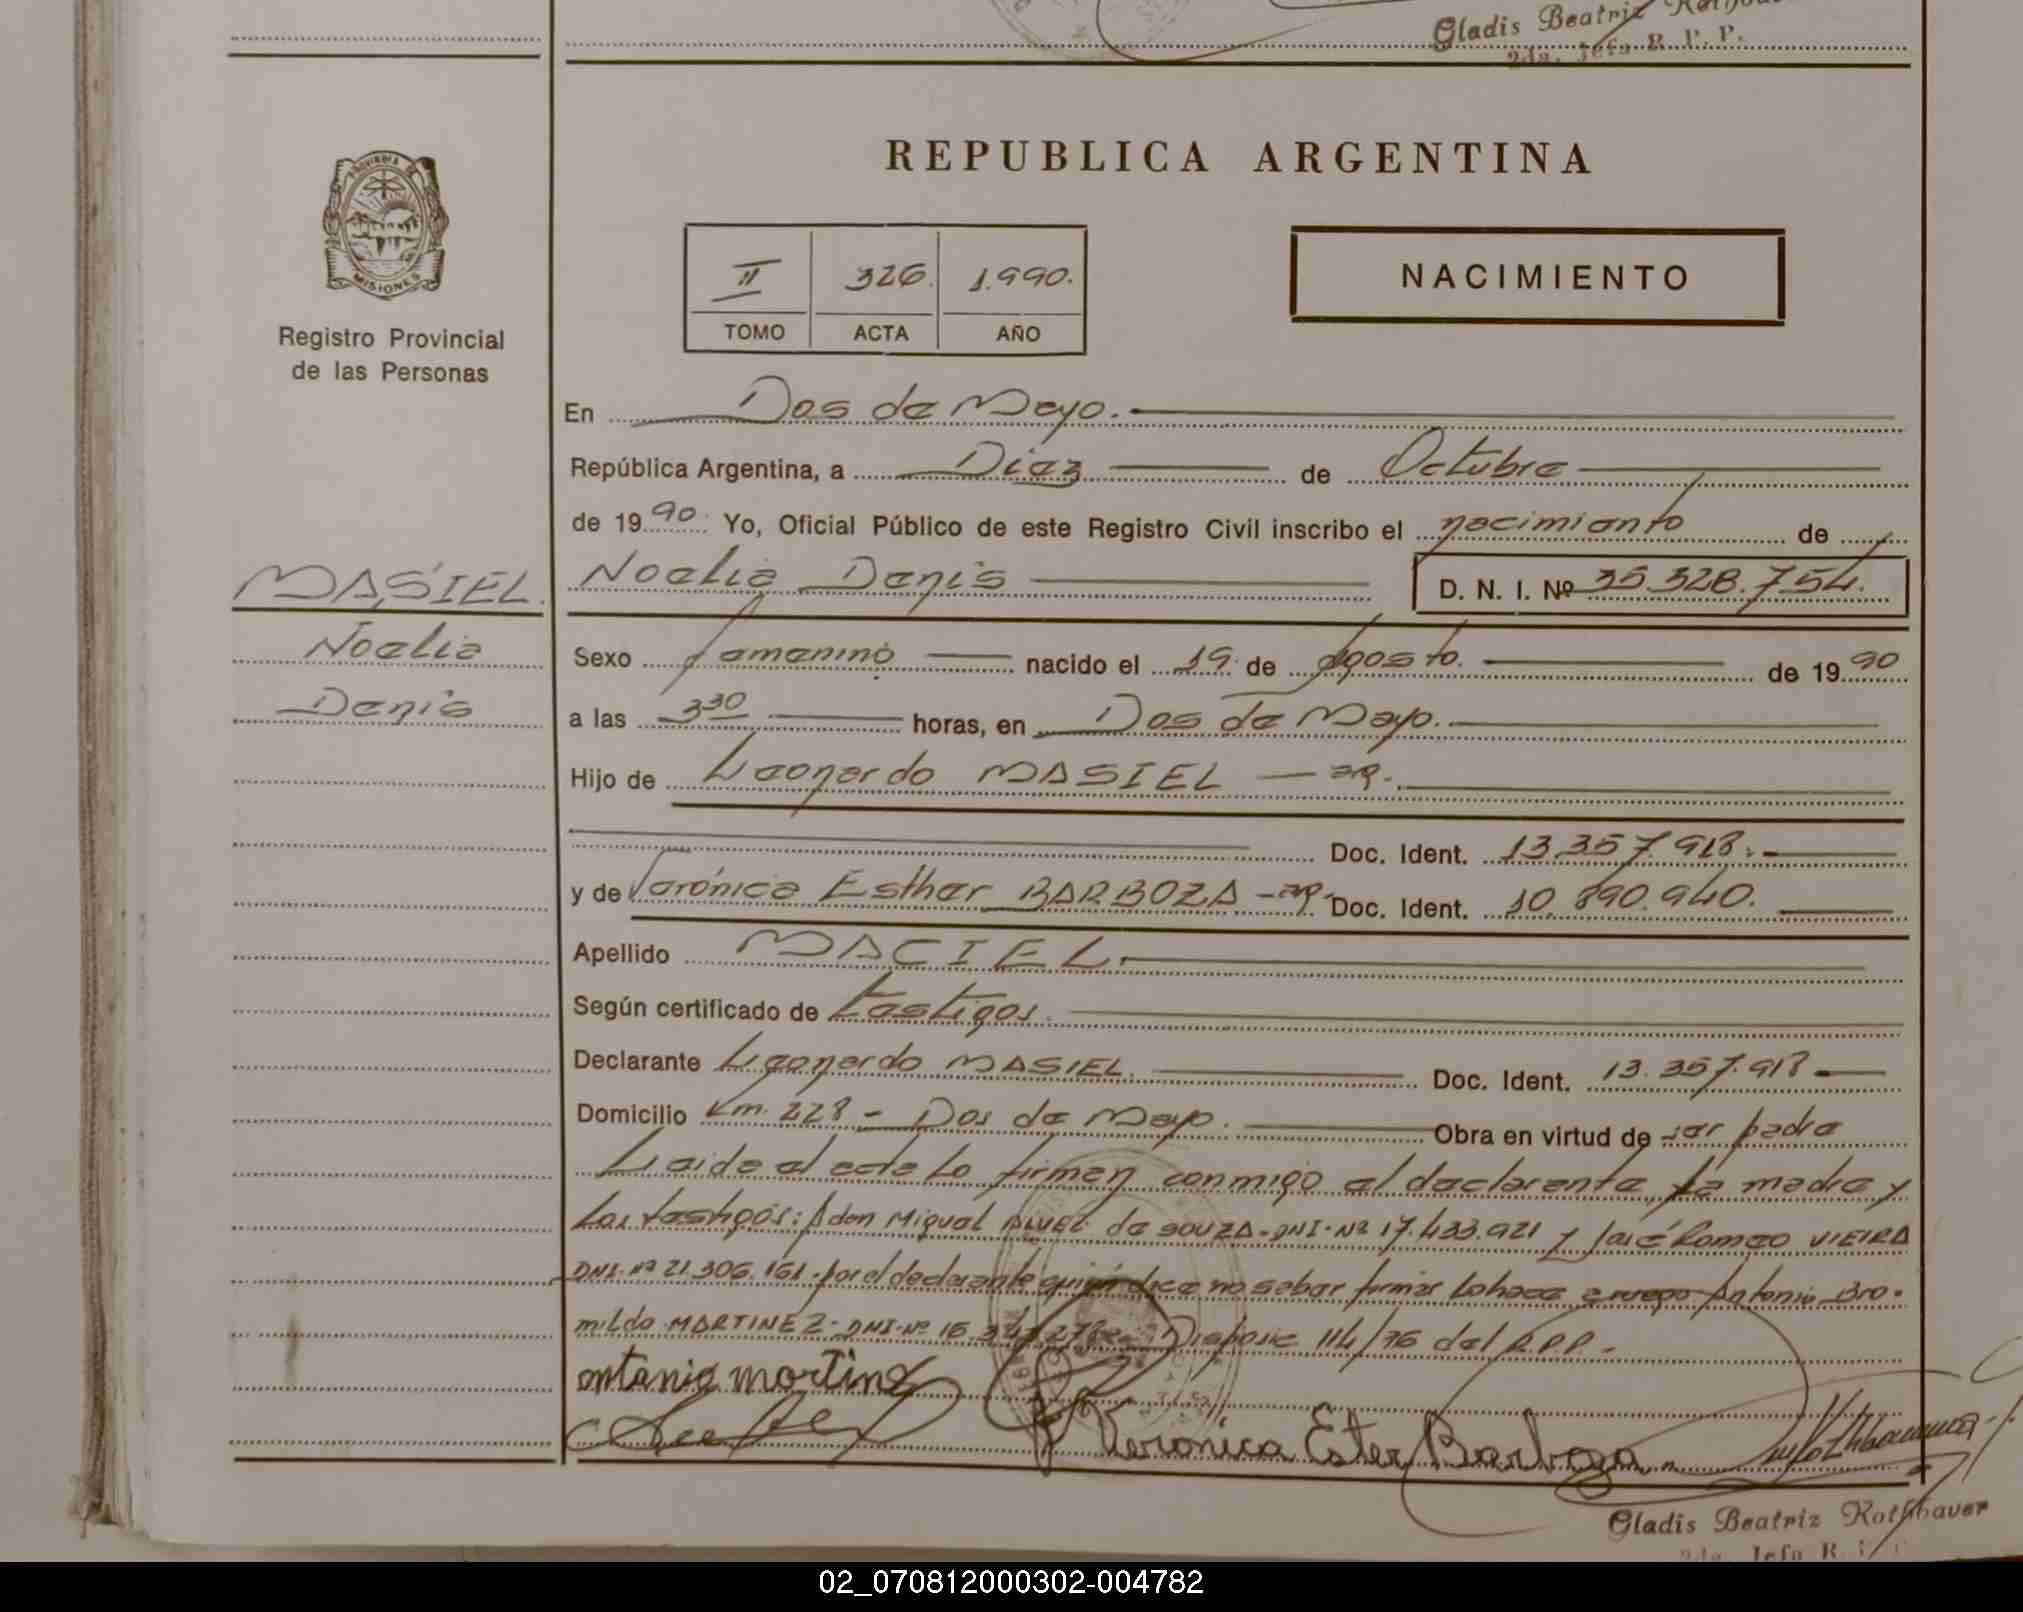 Gladis Beatriz
2da. Jefa R. P. P.
PROVINCIA DE
MISIONES
Registro Provincial
de las Personas
REPUBLICA ARGENTINA
II 326. 1.990.
TOMO ACTA AÑO
NACIMIENTO
En Dos de Mayo.
República Argentina, a Diez de Octubre
de 1990. Yo, Oficial Público de este Registro Civil inscribo el nacimiento de
MASIEL. Noelia Denis D. N. I. Nº 35.328.754.
Noelia
Denis
Sexo femenino nacido el 19. de Agosto. de 1990
a las 3 30 horas, en Dos de Mayo.
Hijo de Leonardo MASIEL - ar.
Doc. Ident. 13.357.918.-
y de Verónica Esther BARBOZA - ar. Doc. Ident. 10.890.940.
Apellido MACIEL.
Según certificado de testigos.
Declarante Leonardo MASIEL. Doc. Ident. 13.357.918
Domicilio Km. 228 - Dos de Mayo. Obra en virtud de ser padre
Leida el acta la firman conmigo el declarante, la madre y
los testigos: Adan Miguel de SOUZA-DNI-Nº 17.433.921 y José Romeo VIEIRA
DNI-Nº 21.306.161-por el declarante quien dice no saber firmar lo hace a ruego Antonio Bro-
mildo MARTINEZ-DNI-Nº Disposic 114/76 del R.P.P.-
Veronica Ester Barboza
Gladis Beatriz Rothbauer
2da. Jefa R.
02_070812000302-004782